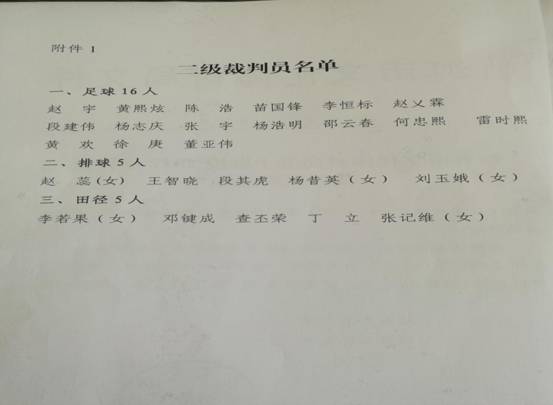 附件 1
二级裁判员名单
一、足球 16 人
赵 宇 黄熙炫 陈 浩 苗国锋 李恒标 赵乂霖
段建伟 杨志庆 张 宇 杨浩明 邵云春 何忠熙 雷时熙
黄 欢 徐 庚 董亚伟
二、排球 5 人
赵 蕊(女) 王智晓 段其虎 杨昔英（女） 刘玉娥（女）
三、田径 5 人
李若果（女） 邓健成 查丕荣 丁 立 张记维（女）